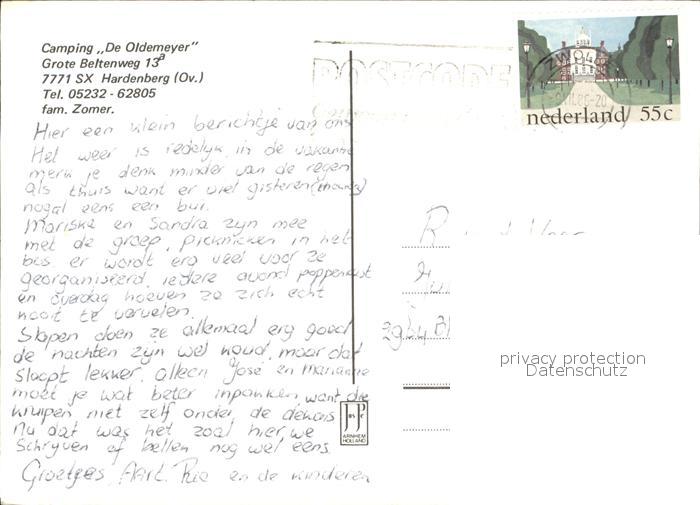 Camping „De Oldemeyer"
Grote Beltenweg 13a
7771 SX Hardenberg (Ov.)
Tel. 05232 - 62805
fam. Zomer.
Hier een klein berichtje van ons
Het weer is redelijk, in de vakantie
merk je denk minder van de regen
als thuis want er viel gisteren
nogal eens een bui.
Mariska en Sandra zijn mee
met de groep, picknicken in het
bos er wordt erg veel voor ze
georganiseerd, iedere avond poppenkast
en overdag hoeven ze zich echt
nooit te vervelen.
Slapen doen ze allemaal erg goed
de nachten zijn wel koud, maar dat
slaapt lekker, alleen José en Marianne
moet je wat beter inpakken, want die
kruipen niet zelf onder de dekens
Nu dat was het zoal hier, we
schrijven of bellen nog wel eens.
Groetjes, Aart. Rie en de kinderen
POSTCODE
nederland 55c
JosPé
ARNHEM
HOLLAND
privacy protection
Datenschutz